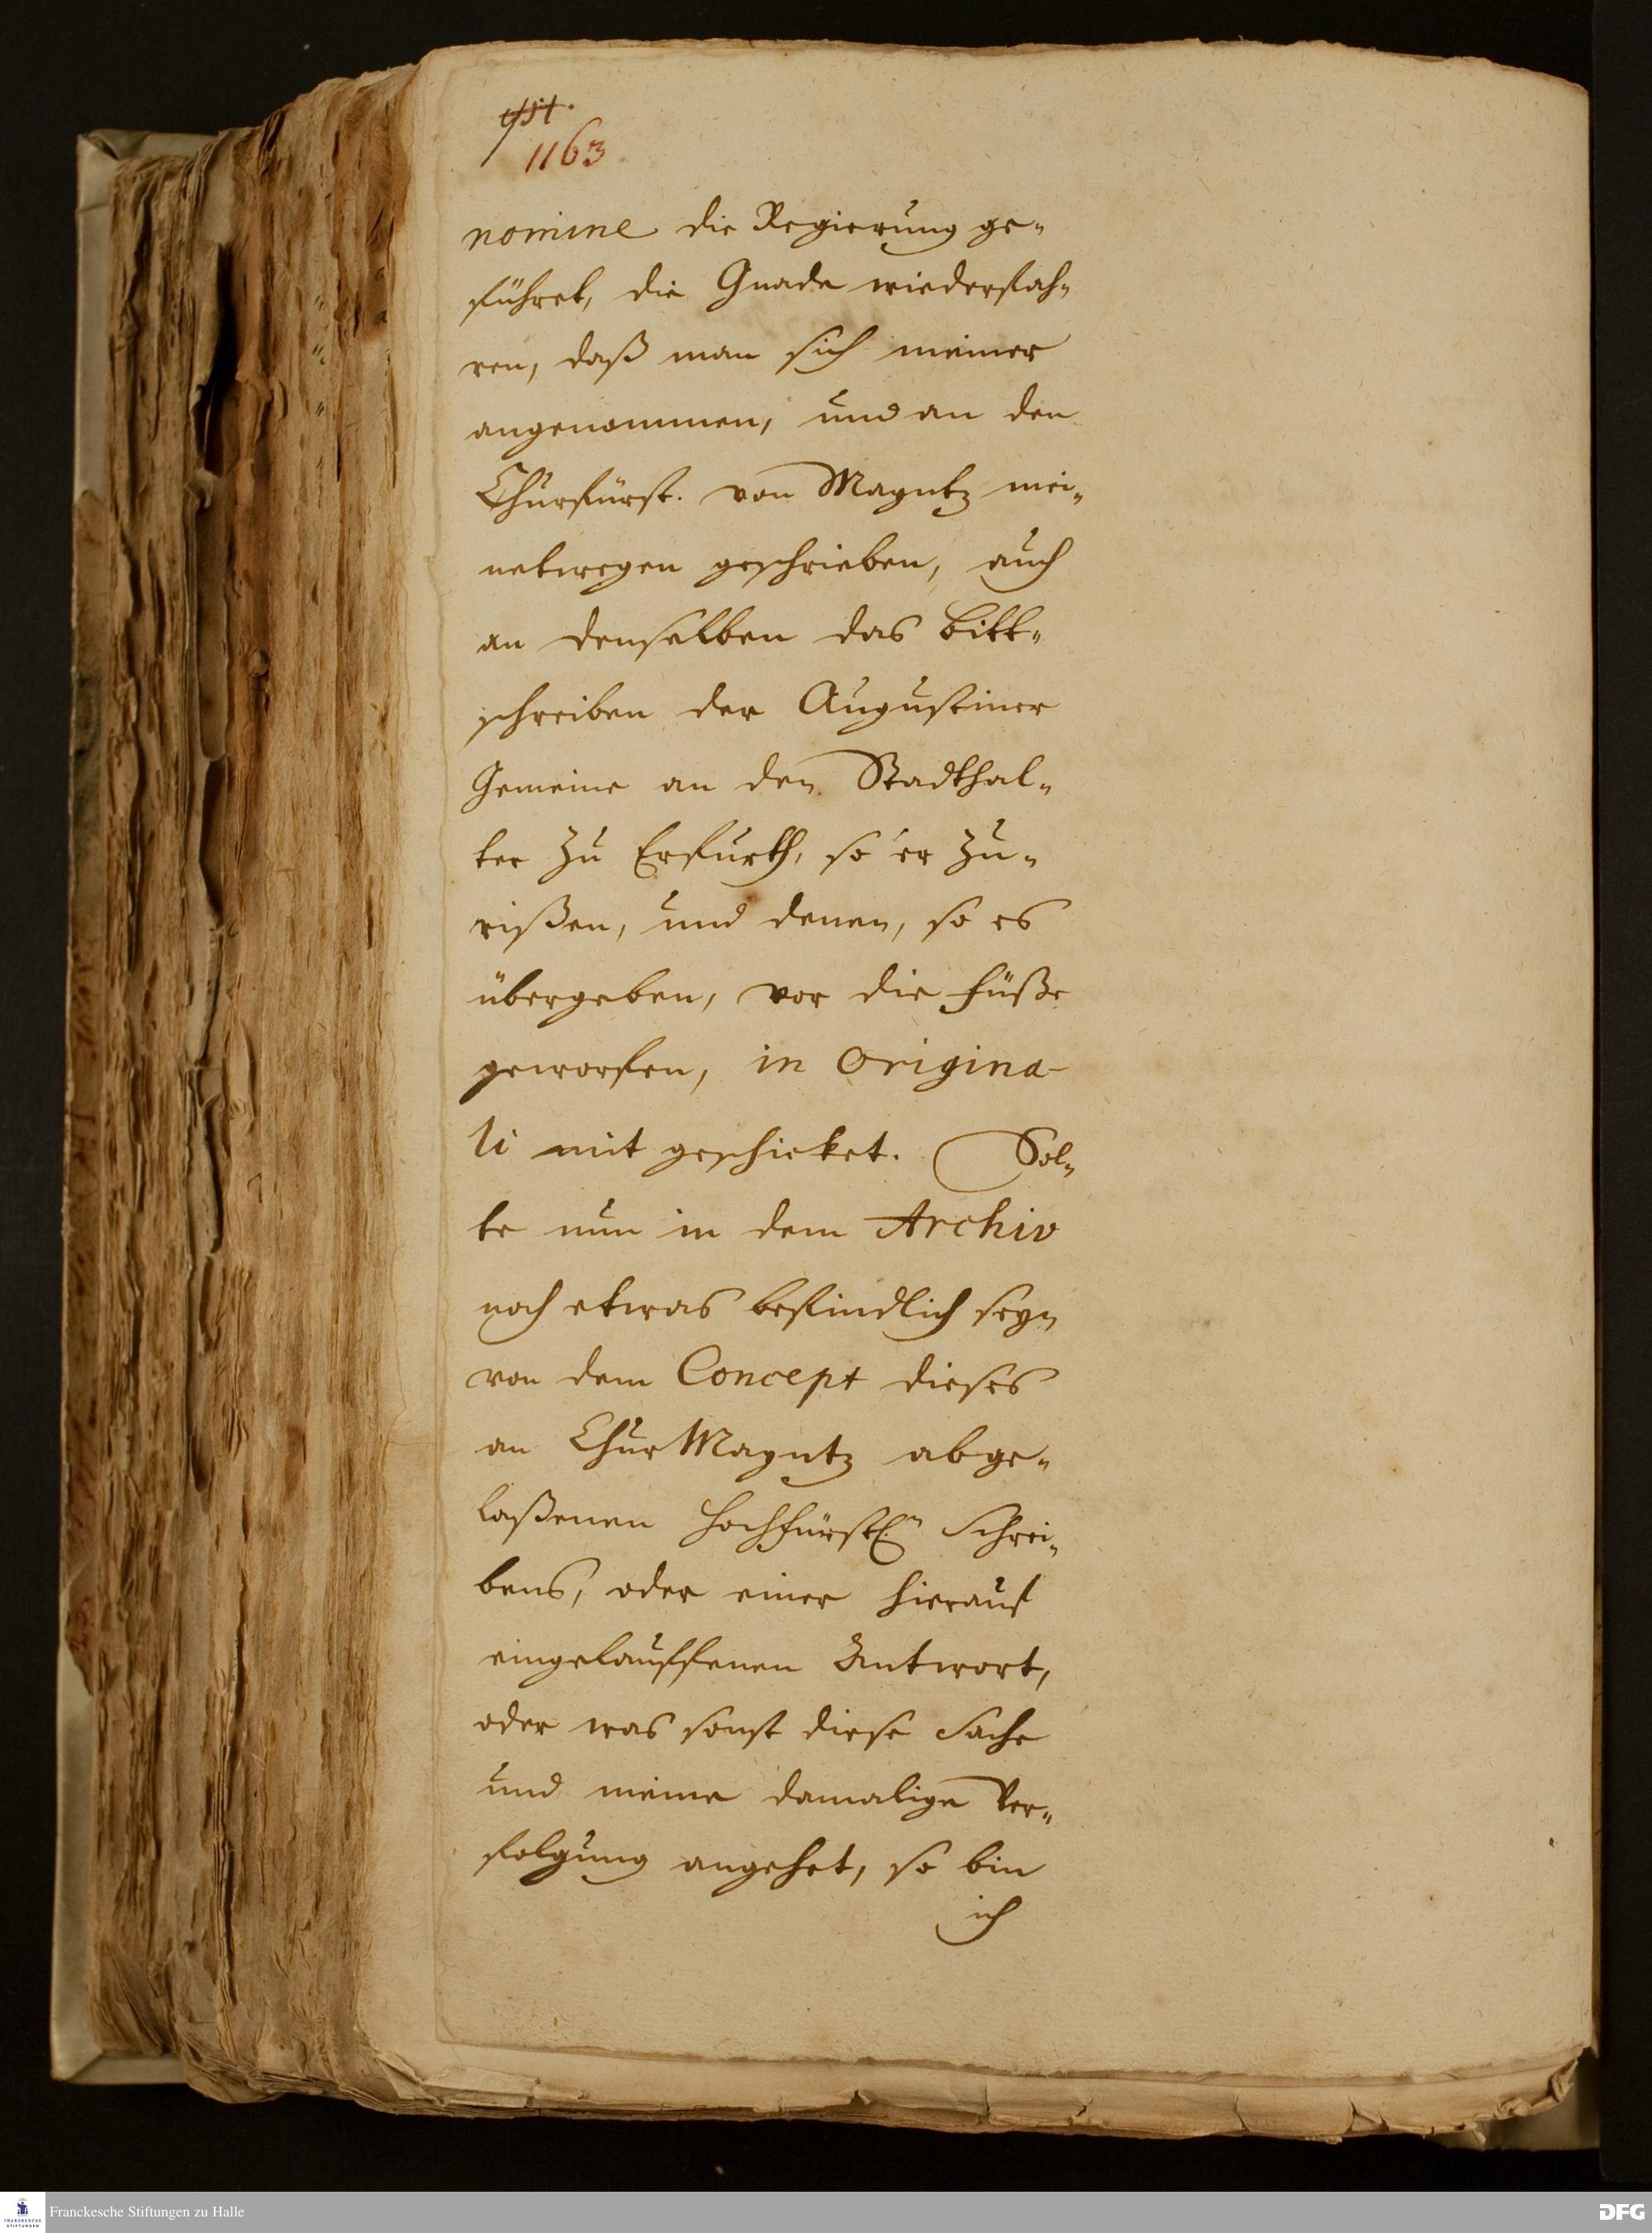 1163.
nomine die Regierung ge-
führet, die Gnade wiederfah-
ren, daß man sich meiner
angenommen, und an den
Churfürst. von Mayntz mei-
netwegen geschrieben, auch
an denselben das Bitt-
schreiben der Augustiner
Gemeine an den Stadthal-
ter zu Erfurth, so er zu-
rißen, und denen, so es
übergeben, vor die Füße
geworfen, in Origina-
li mit geschicket. Sol-
te nun in dem Archiv
noch etwas befindlich seyn
von dem Concept dieses
an Chur Mayntz abge-
laßenen Hochfürstl.n Schrei-
bens, oder einer hierauf
eingelauffenen Antwort,
oder was sonst diese Sache
und meine damalige Ver-
folgung angehet, so bin
ich
Franckesche Stiftungen zu Halle
FRANCKESCHE
STIFTUNGEN
DFG